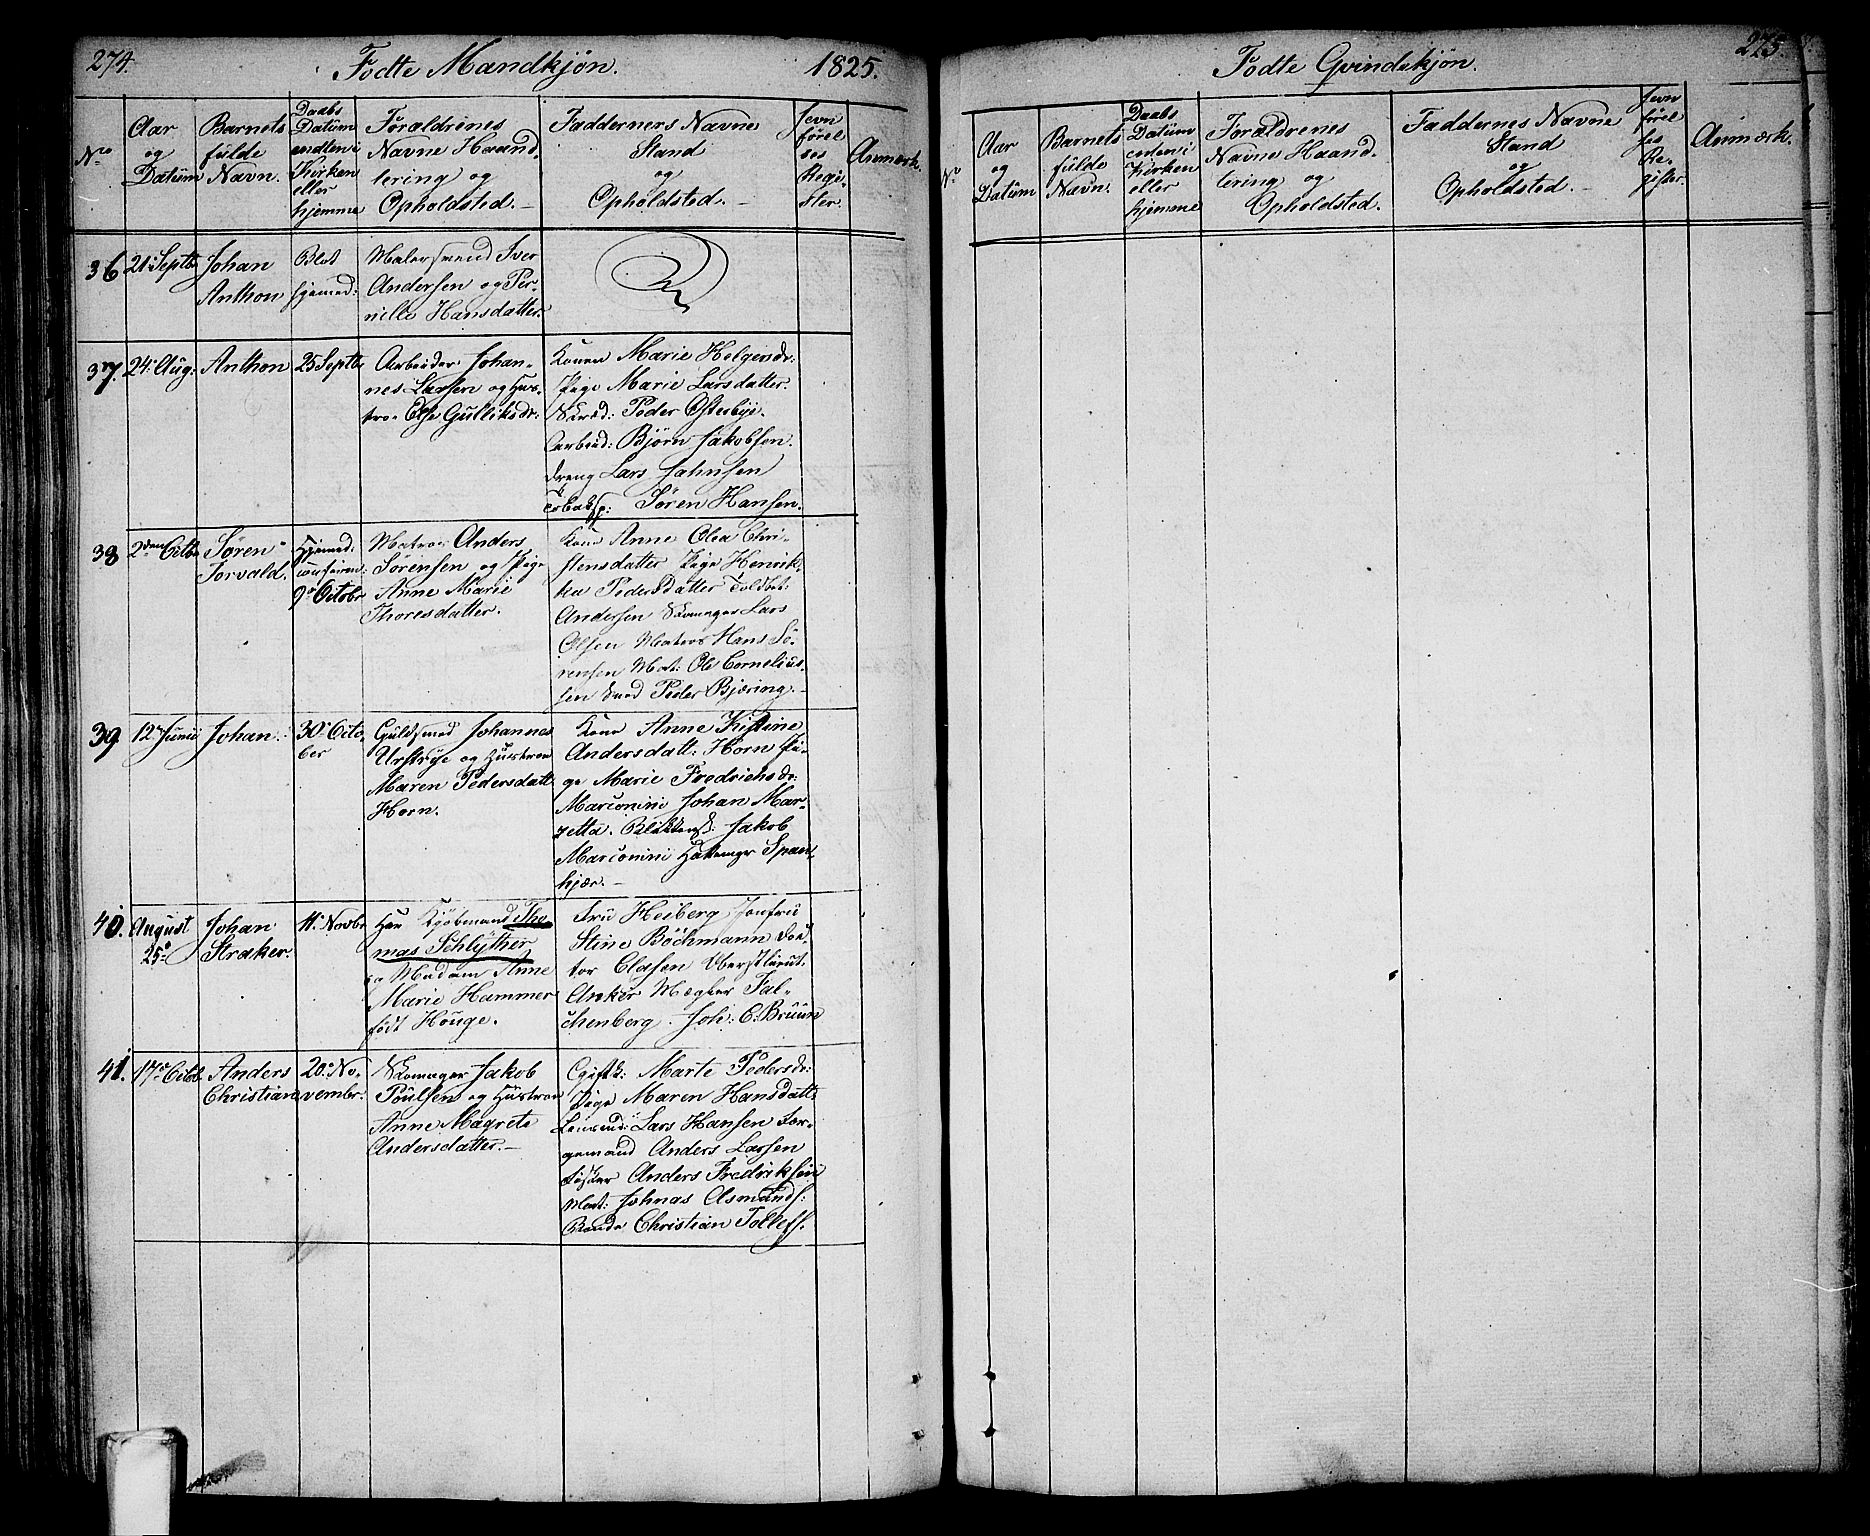 274.
Fødte Mandkjøn.
1825.
No
Aar
og
Datum
Barnets
fulde
Navn.
Daabs
Datum
endten i
Kirken
eller
hjemme
Forældrenes
Navne Haand-
tering og
Opholdsted.
Fadderners Navne
Stand
og
Opholdsted.
Jevn
førel
ses
Regi-
ster.
Anmærk.
36
21. Septbr
Johan
Anthon
Blot
hjemmed:
Malersvend Iver
Andersen og Per-
nille Hansdatter.
37.
24. Aug:
Anthon
25 Septbr
Arbeider Johan-
nes Larsen og Hus-
tro Else Gulliksdr:
Konen Marie Helgersdr:
Pige Marie Larsdatter.
Skræd: Peder Østerbye.
Arbeid: Bjørn Jakobsen.
dreng Lars Jahnsen
Søren Hansen.
38
2den Octbr
Søren
Torvald.
Hjemmed:
9. Octobr
Matros Anders
Sørensen og Pige
Anne Marie
Thoresdatter.
Kone Anne Olea Chri-
stensdatter Pige Henrik-
ka Pedersdatter Toldbet:
Andersen Skomager Lars
Olsen Matros Hans Sø-
rensen Mat: Ole Cornelius-
sen Smed Peder Bjæring.
39
12 Junii
Johan.
30. Octo-
ber
Guldsmed Johannes
Urstrye og Hustroe
Maren Pedersdatt
Horn.
Kone Anne Kistine
Andersdatt: Horn Pi-
ge Marie Fredrichsdr:
Marconini Johan Mar-
zetta. Blikkensl: Jakob
Marconini Hattemager Span-
kjær.
40.
August
25.
Johan
Straker.
11. Novbr
Herr Kjøbmand Tho-
mas Schlÿther
og Madam Anne
Marie Hammer
født Houge.
Fru Heiberg Jomfru
Stine Bochmann Dok-
tor Clasen Oberstlieut:
Anker Mægler Fal-
chenberg. Joh: C: Bruun
41.
17. Octob.
Anders
Christian
20. No-
vembr:
Skomager Jakob
Poulsen og Hustroe
Anne Magrete
Andersdatter.
Marte Pedersdr:
Pige Maren Hansdatt:
Lars Hansen Fær-
gemand Anders Larsen
Fisker Anders Fredriksen
Mat: Johnas Asmunds:
Bonde Christian Tollefs.
275.
Fødte Qvindekjøn.
No
Aar
og
Datum
Barnets
fulde
Navn.
Daabs
Datum
enten i
Kirken
eller
hjemme
Forældrenes
Navne Haand-
tering og
Opholdsted.
Faddernes Navne
Stand
og
Opholdsted.
Jevn
førel
ses
Re-
gister.
Anmærk.